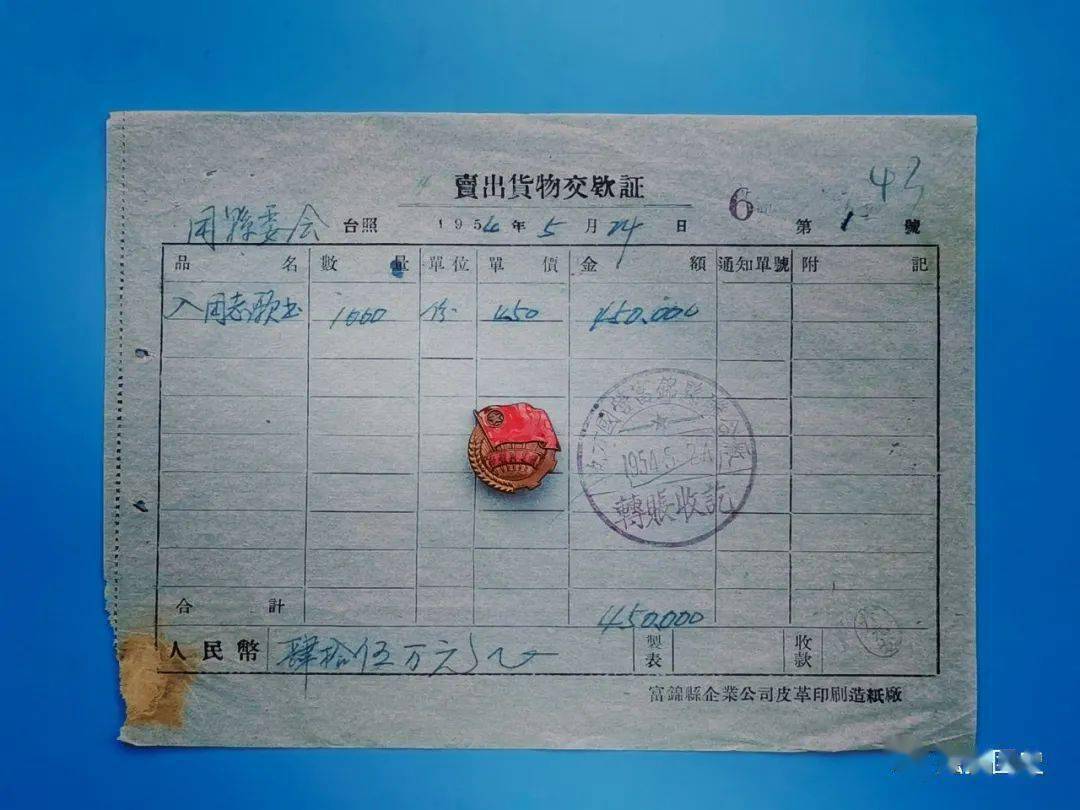 賣出貨物交欵証
43
团縣委会 台照 1954年5月24日 6 第 1 號
品名 數量 單位 單價 金額 通知單號 附記
入团志愿书 1000 份 450 450,000
1954.5.24
轉賬收訖
合計 450,000
人民幣 肆拾伍万元 製表 收款
富錦縣企業公司皮革印刷造紙廠